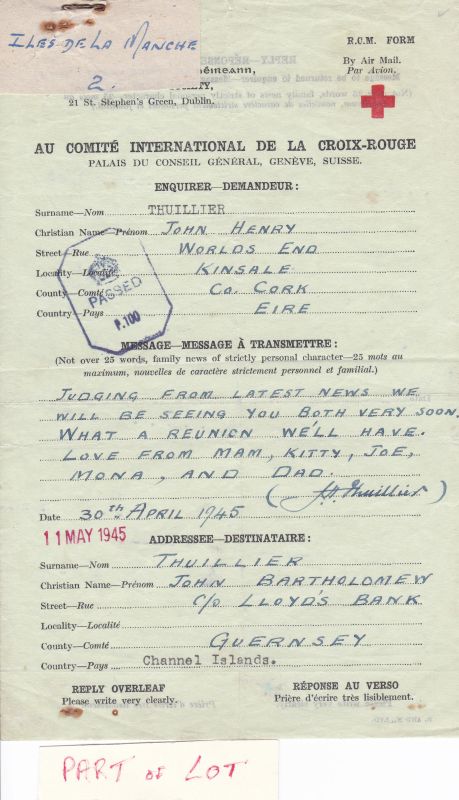 ILES DE LA MANCHE
2.
R.C.M. FORM
By Air Mail.
Par Avion.
21 St. Stephen's Green, Dublin.
AU COMITÉ INTERNATIONAL DE LA CROIX-ROUGE
PALAIS DU CONSEIL GÉNÉRAL, GENÈVE, SUISSE.
ENQUIRER—DEMANDEUR:
Surname—Nom THUILLIER
Christian Name—Prénom JOHN HENRY
Street—Rue WORLDS END
Locality—Localité KINSALE
County—Comté Co. CORK
Country—Pays EIRE
PASSED
P.100
MESSAGE—MESSAGE À TRANSMETTRE:
(Not over 25 words, family news of strictly personal character—25 mots au
maximum, nouvelles de caractère strictement personnel et familial.)
JUDGING FROM LATEST NEWS WE
WILL BE SEEING YOU BOTH VERY SOON.
WHAT A REUNION WE'LL HAVE.
LOVE FROM MAM, KITTY, JOE,
MONA, AND DAD.
(J.H. Thuillier)
Date 30th APRIL 1945
11 MAY 1945
ADDRESSEE—DESTINATAIRE:
Surname—Nom THUILLIER
Christian Name—Prénom JOHN BARTHOLOMEW
Street—Rue C/o LLOYD'S BANK
Locality—Localité
County—Comté GUERNSEY
Country—Pays Channel Islands.
REPLY OVERLEAF
Please write very clearly.
RÉPONSE AU VERSO
Prière d'écrire très lisiblement.
PART OF LOT